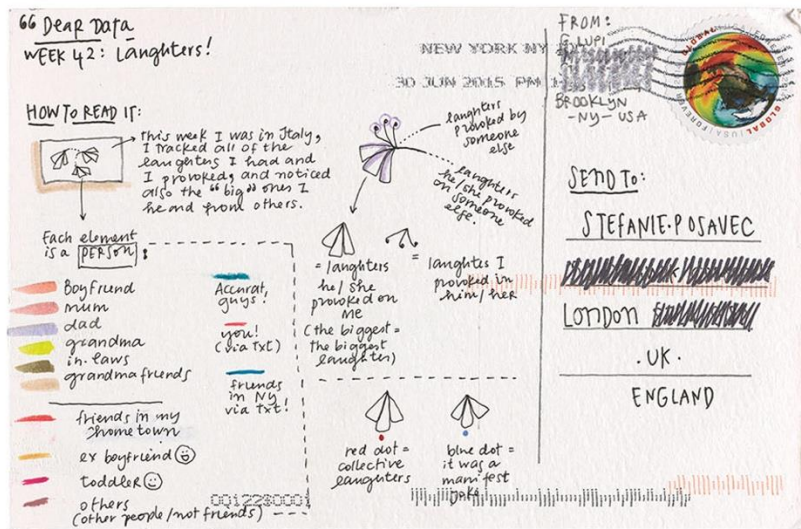 "Dear Data
WEEK 42: Laughters!
HOW TO READ IT:
this week I was in Italy,
I tracked all of the
laughters I had and
I provoked, and noticed
also the "big" ones I
heard from others.
Each element
is a PERSON:
Boyfriend
mum
dad
grandma
in.laws
grandma friends
friends in my
hometown
ex boyfriend
toddler
others
(other people/not friends)
Accurat,
guys!
you!
(via txt)
friends
in NY
via txt!
laughters
provoked by
someone
else
laughters
he/she provoked
on someone
else.
= laughters
he/she
provoked on
ME
(the biggest =
the biggest
laughter)
= laughtes I
provoked in
him/her
red dot =
collective
laughters
blue dot =
it was a
manifest
joke
NEW YORK NY
30 JUN 2015 PM
FROM:
G. LUPI
BROOKLYN
-NY- USA
GLOBAL
USA
FOREVER
GLOBAL
SEND TO:
STEFANIE·POSAVEC
LONDON
·UK·
ENGLAND